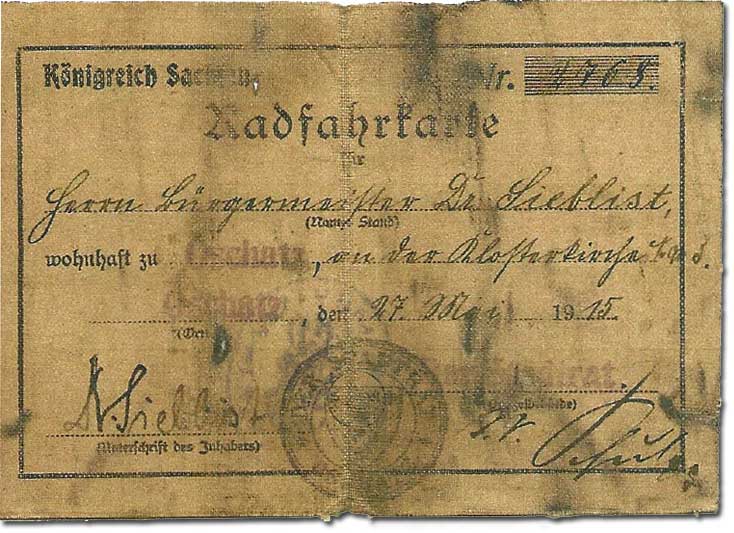 Königreich Sachsen. Nr. 2768.
Radfahrkarte
für
Herrn Bürgermeister Dr. Sieblist,
(Name, Stand)
wohnhaft zu Oschatz, an der Klosterkirche
Oschatz, den 27. Mai 1915.
(Ort)
Sieblist
(Unterschrift des Inhabers)